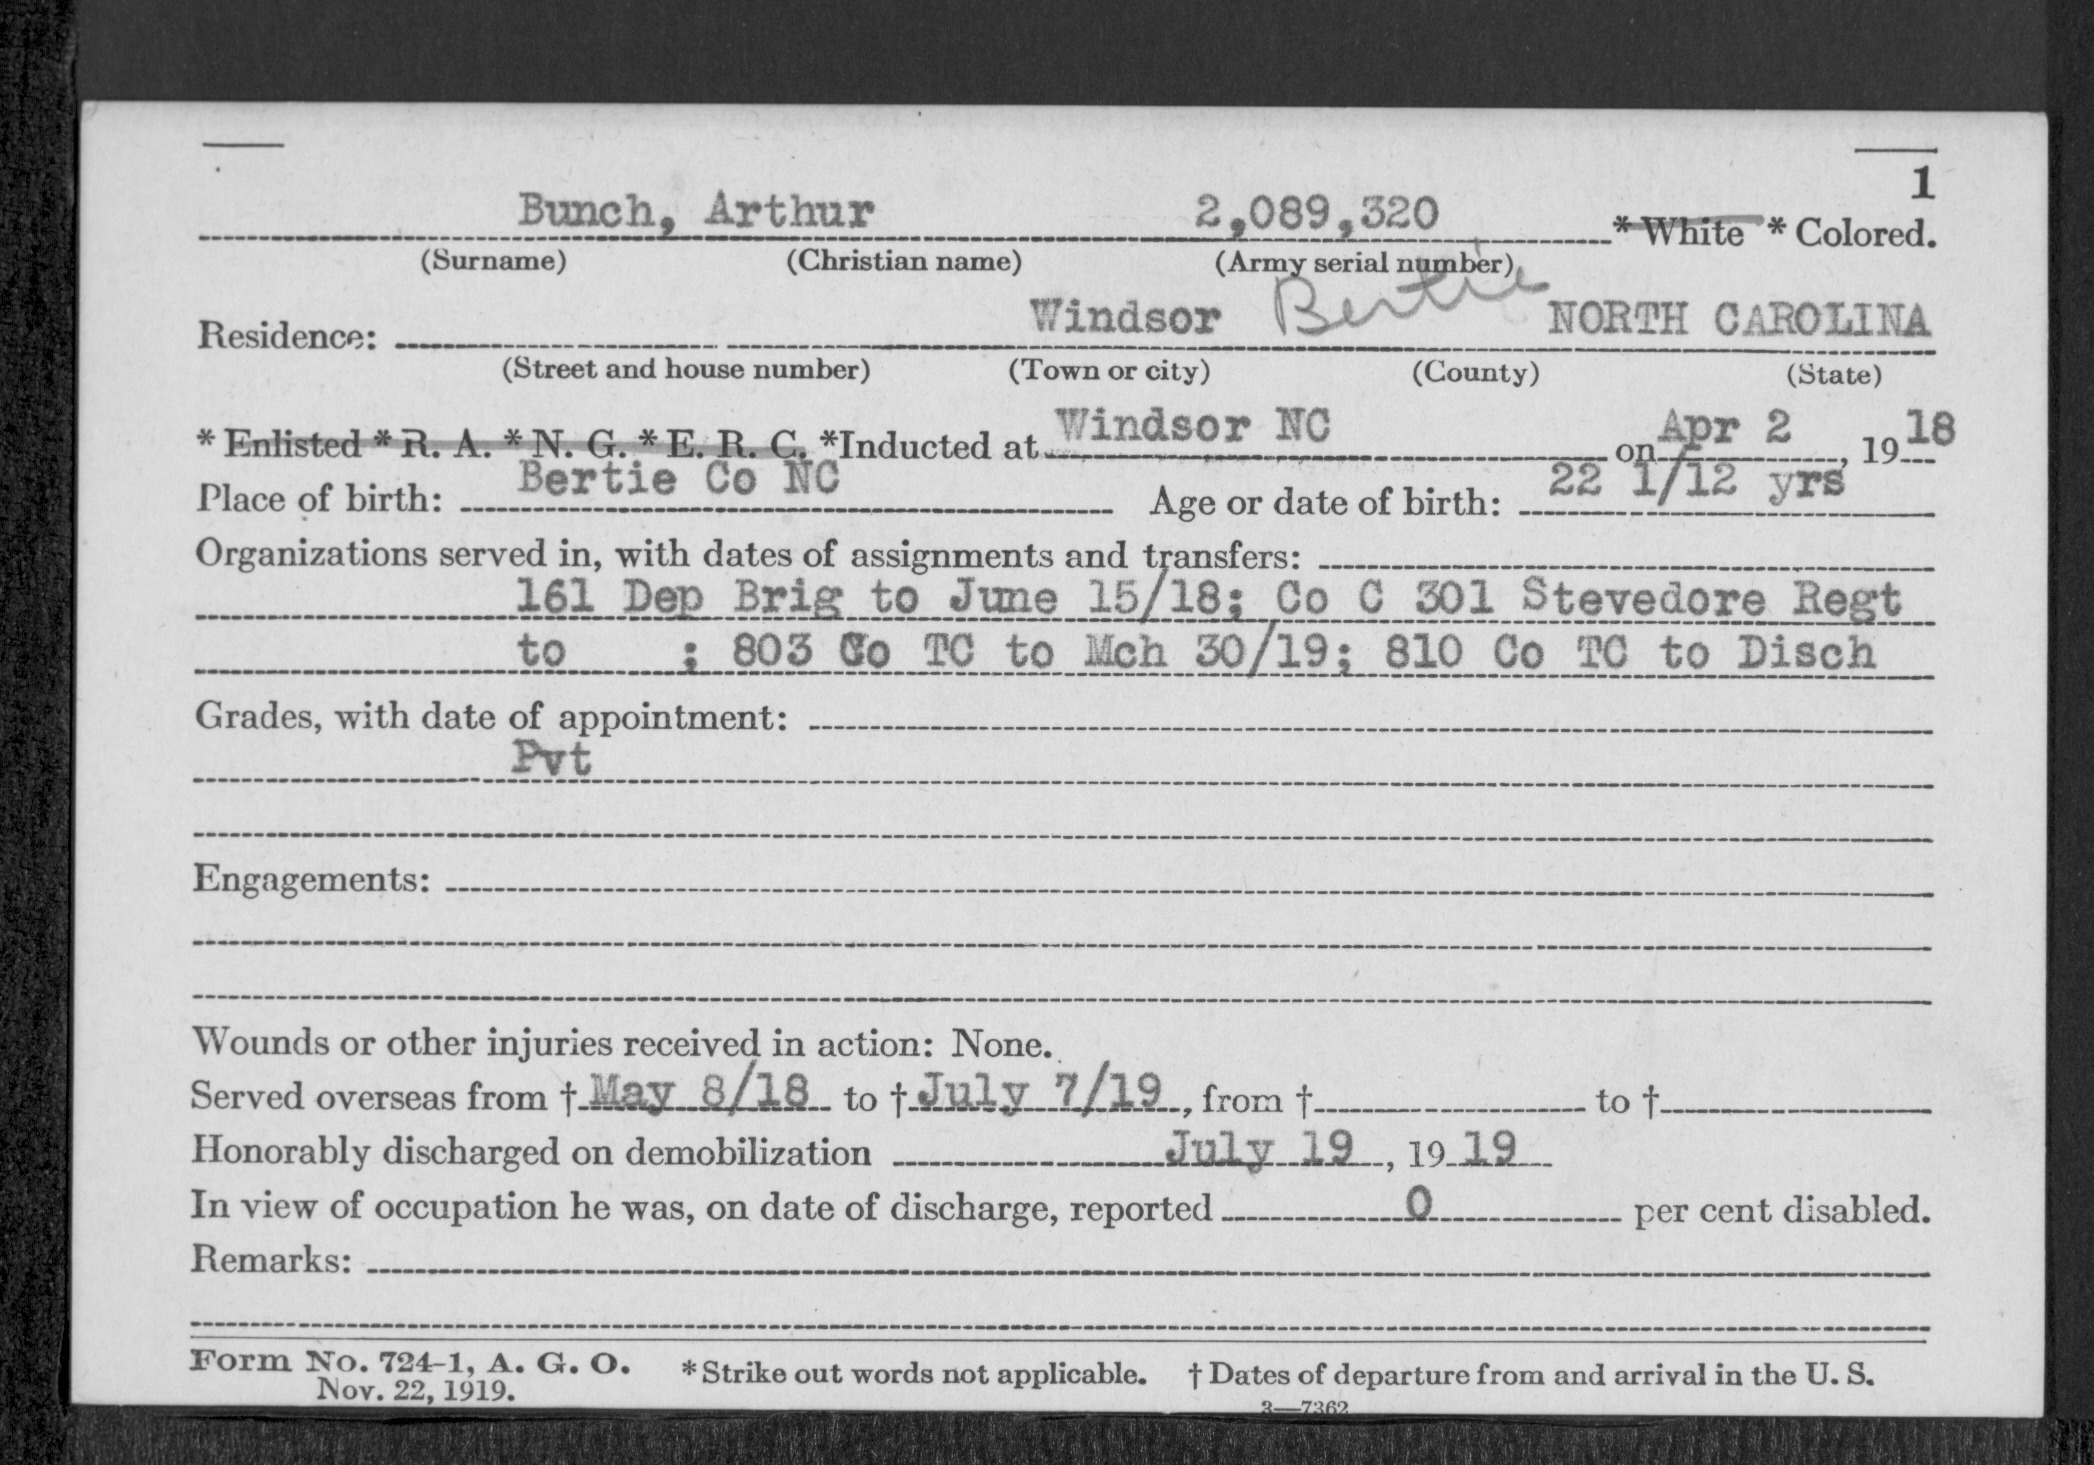 1
Bunch, Arthur 2,089,320 * White * Colored.
(Surname) (Christian name) (Army serial number)
Residence: Windsor Bertie NORTH CAROLINA
(Street and house number) (Town or city) (County) (State)
* Enlisted * R. A. * N. G. * E. R. C. * Inducted at Windsor NC on Apr 2, 19 18
Place of birth: Bertie Co NC Age or date of birth: 22 1/12 yrs
Organizations served in, with dates of assignments and transfers:
161 Dep Brig to June 15/18; Co C 301 Stevedore Regt
to ; 803 Co TC to Mch 30/19; 810 Co TC to Disch
Grades, with date of appointment:
Pvt
Engagements:
Wounds or other injuries received in action: None.
Served overseas from † May 8/18 to † July 7/19, from † to †
Honorably discharged on demobilization July 19, 19 19
In view of occupation he was, on date of discharge, reported 0 per cent disabled.
Remarks:
Form No. 724-1, A. G. O. * Strike out words not applicable. † Dates of departure from and arrival in the U. S.
Nov. 22, 1919.
3—7362